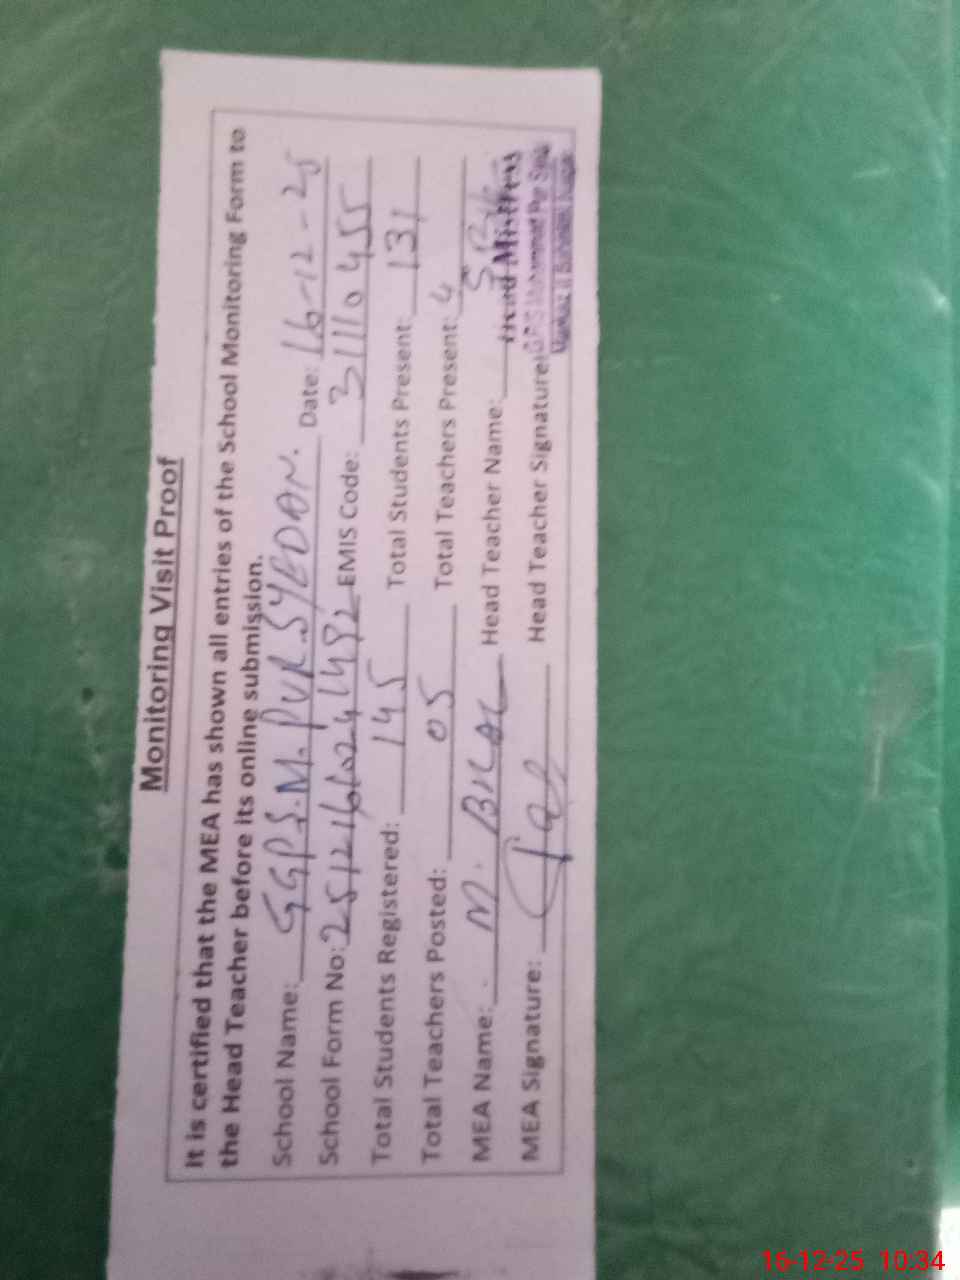 Monitoring Visit Proof
It is certified that the MEA has shown all entries of the School Monitoring Form to
the Head Teacher before its online submission.
School Name: GGPS.M.PUR.SYEDAN. Date: 16-12-25
School Form No: EMIS Code: 31110455
Total Students Registered: 145 Total Students Present: 131
Total Teachers Posted: 05 Total Teachers Present: 4
MEA Name: M. BILAL Head Teacher Name:
MEA Signature: Head Teacher Signature:
Head Mistress
16-12-25 10:34